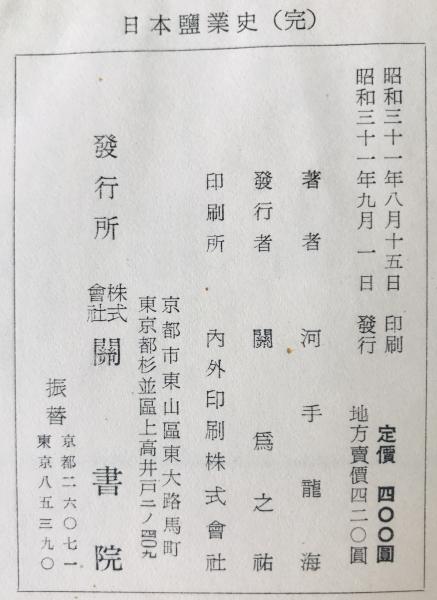 日本鹽業史（完）
昭和三十一年八月十五日　印刷
昭和三十一年九月一日　發行
定價　四〇〇圓
地方賣價四二〇圓
著者　河手龍海
發行者　關爲之祐
印刷所　內外印刷株式會社
京都市東山區東大路馬町
東京都杉並區上高井戸二ノ四〇九
發行所　株式會社　關書院
振替　京都二六〇七一
東京八五三九〇